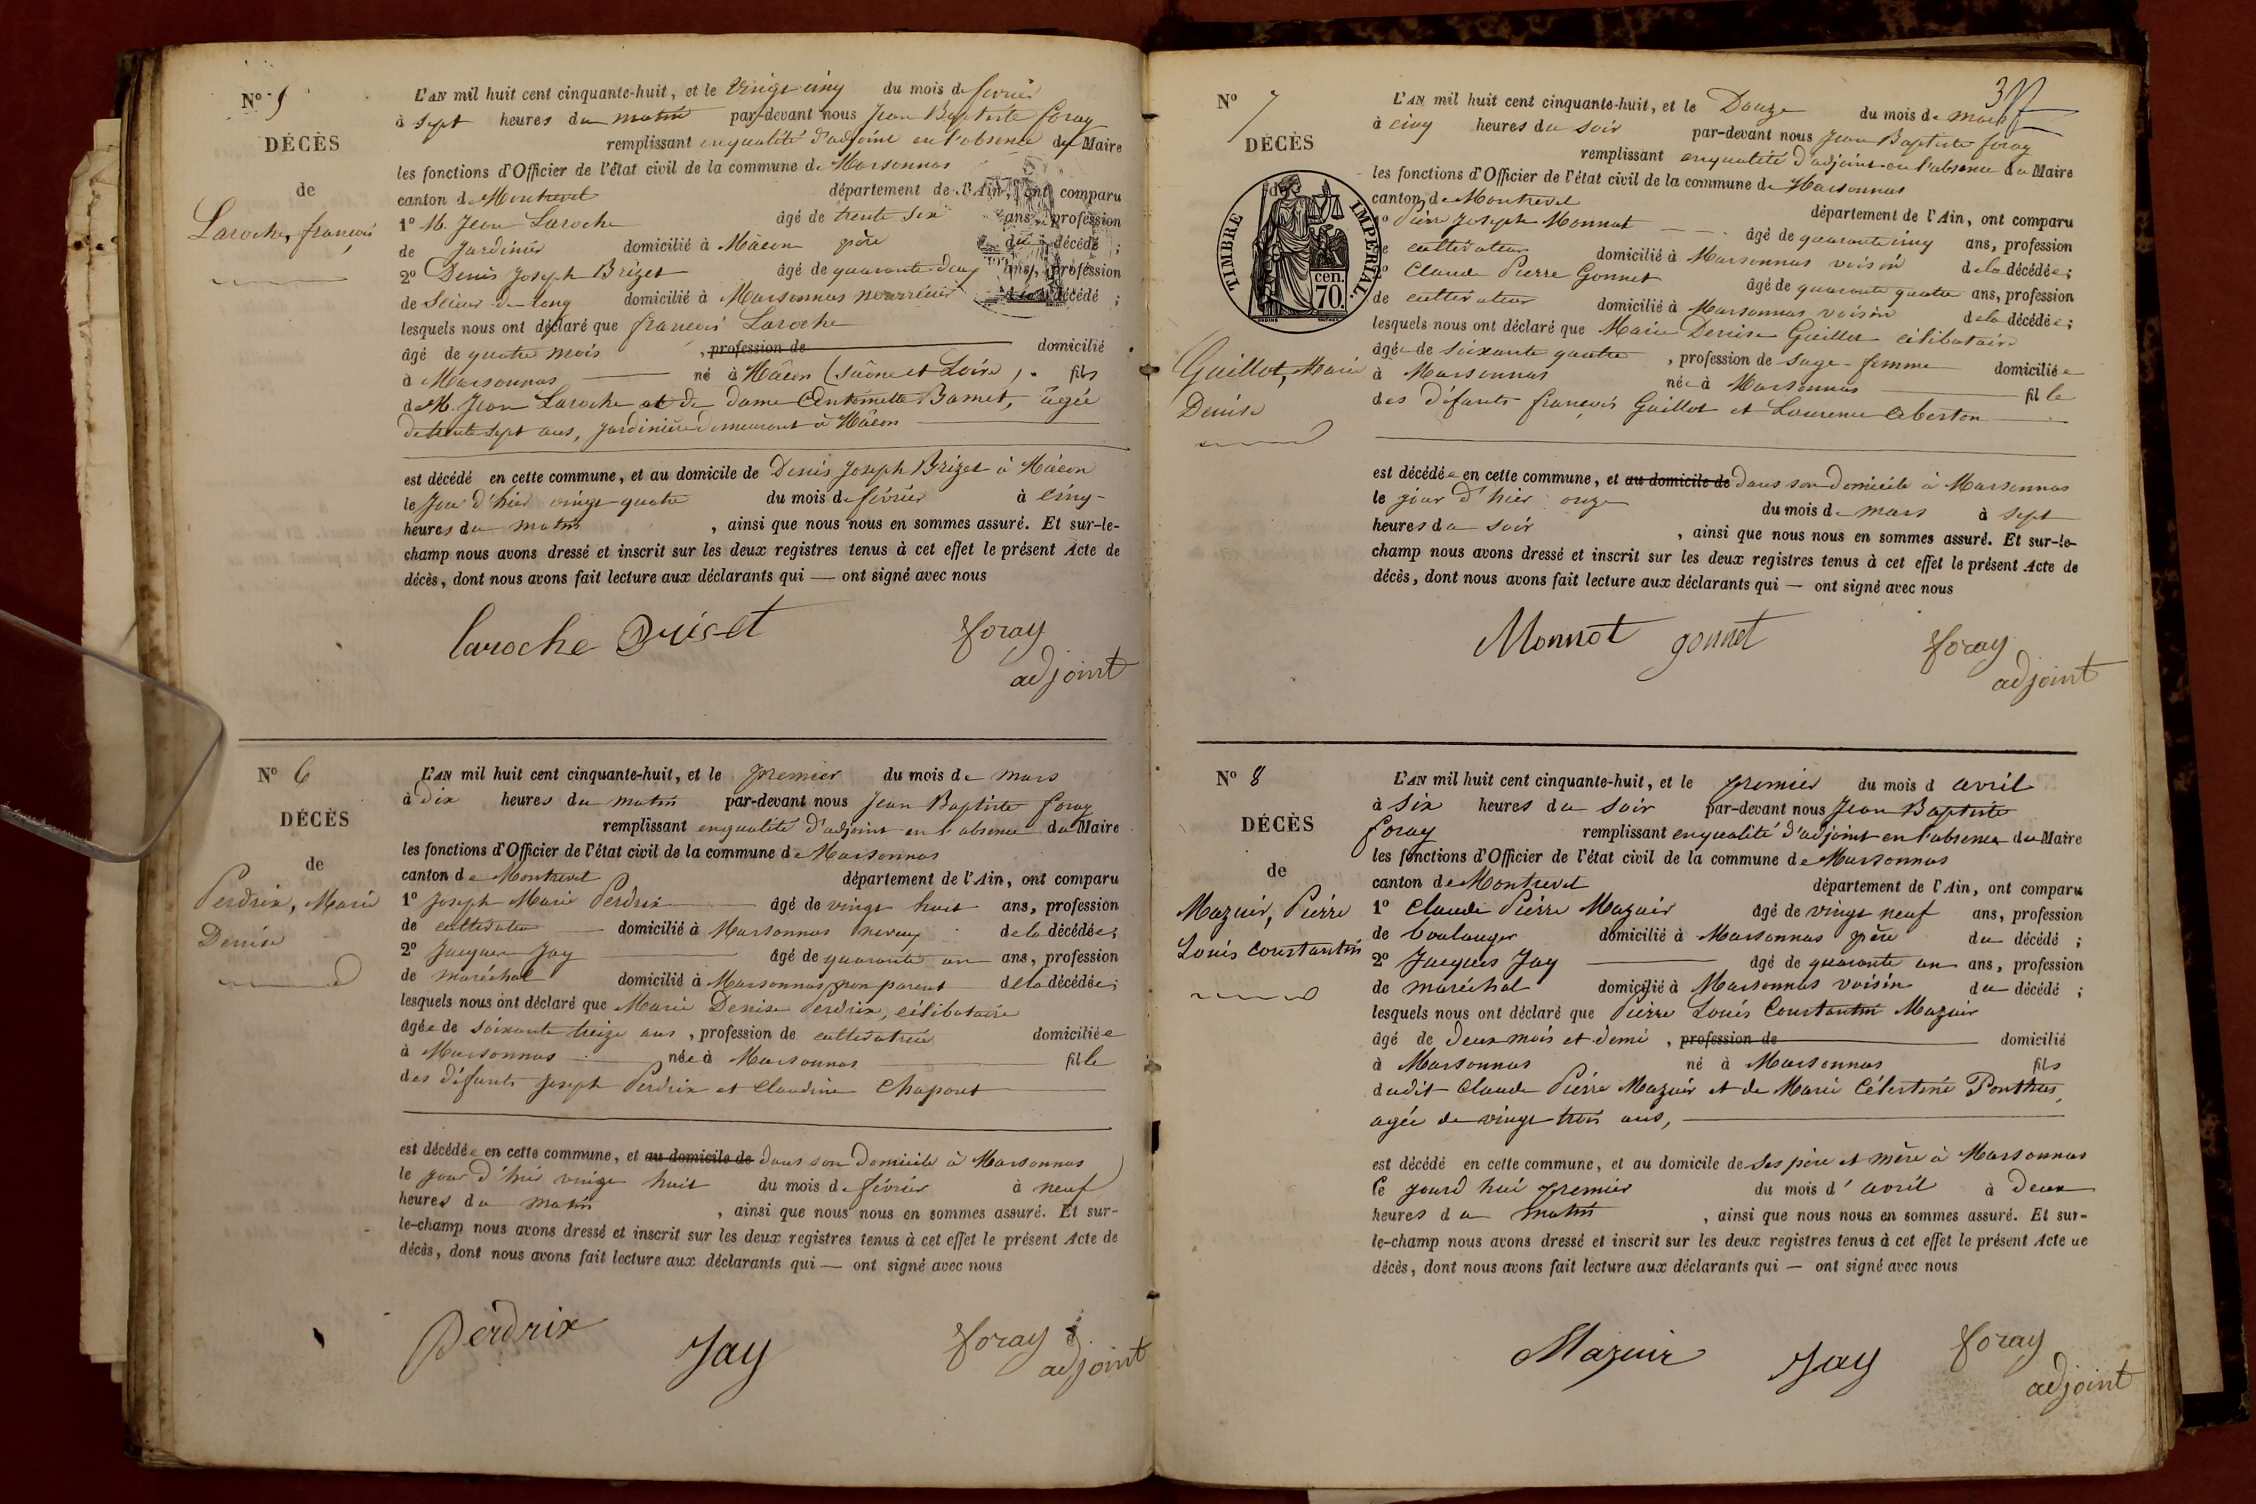 N° 5
DÉCÈS
de
Laroche, françois
L'AN mil huit cent cinquante-huit, et le vingt cinq du mois de février
à sept heures du matin par-devant nous Jean Baptiste foray
remplissant en qualité d'adjoint en l'absence du Maire
les fonctions d'Officier de l'état civil de la commune de Marsonnas
canton de Montrevel département de l'Ain, ont comparu
1° M. Jean Laroche âgé de trente six ans, profession
de Jardinier domicilié à Mâcon père du décédé ;
2° Denis Joseph Brizet âgé de quarante deux ans, profession
de Scieur de long domicilié à Marsonnas nourricier du décédé ;
lesquels nous ont déclaré que françois Laroche
âgé de quatre mois , profession de domicilié
à Marsonnas né à Mâcon (Saône et Loire). fils
de M. Jean Laroche et de dame Antoinette Bamet, âgée
de trente sept ans, Jardinière demeurant à Mâcon
est décédé en cette commune, et au domicile de Denis Joseph Brizet à Mâcon
le Jour d'hier vingt quatre du mois de février à cinq
heures du matin , ainsi que nous nous en sommes assuré. Et sur-le-
champ nous avons dressé et inscrit sur les deux registres tenus à cet effet le présent Acte de
décès, dont nous avons fait lecture aux déclarants qui — ont signé avec nous
laroche Briset foray
adjoint
N° 6
DÉCÈS
de
Perdrix, Marie
Denise
L'AN mil huit cent cinquante-huit, et le premier du mois de mars
à dix heures du matin par-devant nous Jean Baptiste foray
remplissant en qualité d'adjoint en l'absence du Maire
les fonctions d'Officier de l'état civil de la commune de Marsonnas
canton de Montrevel département de l'Ain, ont comparu
1° Joseph Marie Perdrix âgé de vingt huit ans, profession
de cultivateur domicilié à Marsonnas neveu de la décédée ;
2° Jacques Jay âgé de quarante un ans, profession
de maréchal domicilié à Marsonnas, non parent de la décédée ;
lesquels nous ont déclaré que Marie Denise Perdrix, célibataire
âgée de soixante treize ans , profession de cultivatrice domiciliée
à Marsonnas née à Marsonnas fille
des défunts Joseph Perdrix et Claudine Chapout
est décédée en cette commune, et au domicile de dans son Domicile à Marsonnas
le jour d'hier vingt huit du mois de février à neuf
heures du matin , ainsi que nous nous en sommes assuré. Et sur-
le-champ nous avons dressé et inscrit sur les deux registres tenus à cet effet le présent Acte de
décès, dont nous avons fait lecture aux déclarants qui — ont signé avec nous
Perdrix Jay foray
adjoint
N° 7
DÉCÈS
de
TIMBRE IMPÉRIAL.
70 cen.
Guillot, Marie
Denise
L'AN mil huit cent cinquante-huit, et le Douze du mois de mars
à cinq heures du soir par-devant nous Jean Baptiste foray
remplissant en qualité d'adjoint en l'absence du Maire
les fonctions d'Officier de l'état civil de la commune de Marsonnas
canton de Montrevel département de l'Ain, ont comparu
1° Pierre Joseph Monnot âgé de quarante cinq ans, profession
de cultivateur domicilié à Marsonnas voisin de la décédée ;
2° Claude Pierre Gonnet âgé de quarante quatre ans, profession
de cultivateur domicilié à Marsonnas voisin de la décédée ;
lesquels nous ont déclaré que Marie Denise Guillot célibataire
âgée de soixante quatre , profession de Sage-femme domiciliée
à Marsonnas née à Marsonnas fille
des défunts françois Guillot et Laurence Aberton
est décédée en cette commune, et au domicile de dans son Domicile à Marsonnas
le jour d'hier onze du mois de mars à sept
heures du soir , ainsi que nous nous en sommes assuré. Et sur-le-
champ nous avons dressé et inscrit sur les deux registres tenus à cet effet le présent Acte de
décès, dont nous avons fait lecture aux déclarants qui — ont signé avec nous
Monnot gonnet foray
adjoint
N° 8
DÉCÈS
de
Mazuir, Pierre
Louis Constantin
L'AN mil huit cent cinquante-huit, et le premier du mois d avril
à six heures du soir par-devant nous Jean Baptiste
foray remplissant en qualité d'adjoint en l'absence du Maire
les fonctions d'Officier de l'état civil de la commune de Marsonnas
canton de Montrevel département de l'Ain, ont comparu
1° Claude Pierre Mazuir âgé de vingt neuf ans, profession
de boulanger domicilié à Marsonnas père du décédé ;
2° Jacques Jay âgé de quarante un ans, profession
de maréchal domicilié à Marsonnas voisin du décédé ;
lesquels nous ont déclaré que Pierre Louis Constantin Mazuir
âgé de Deux mois et demi , profession de domicilié
à Marsonnas né à Marsonnas fils
dudit Claude Pierre Mazuir et de Marie Célestine Ponthus,
agée de vingt trois ans,
est décédé en cette commune, et au domicile de ses père et mère à Marsonnas
le jourd'hui premier du mois d'avril à Deux
heures du matin , ainsi que nous nous en sommes assuré. Et sur-
le-champ nous avons dressé et inscrit sur les deux registres tenus à cet effet le présent Acte de
décès, dont nous avons fait lecture aux déclarants qui — ont signé avec nous
Mazuir Jay foray
adjoint